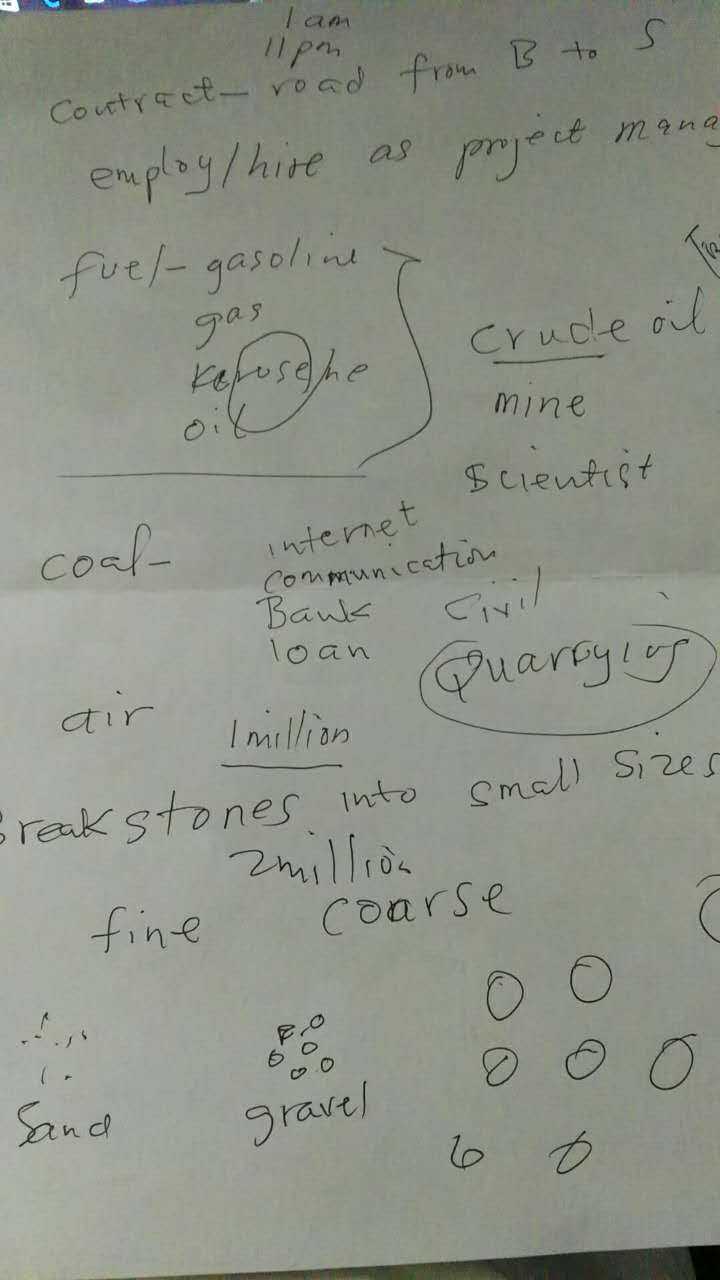 1 am
11 pm
contract - road from B to S
employ/hire as project mana
fuel - gasoline
gas
kerosene
oil
crude oil
mine
scientist
coal - internet
communication
Bank
loan
civil
Quarrying
air
1 million
Break stones into small sizes
2 million
fine coarse
Sand gravel